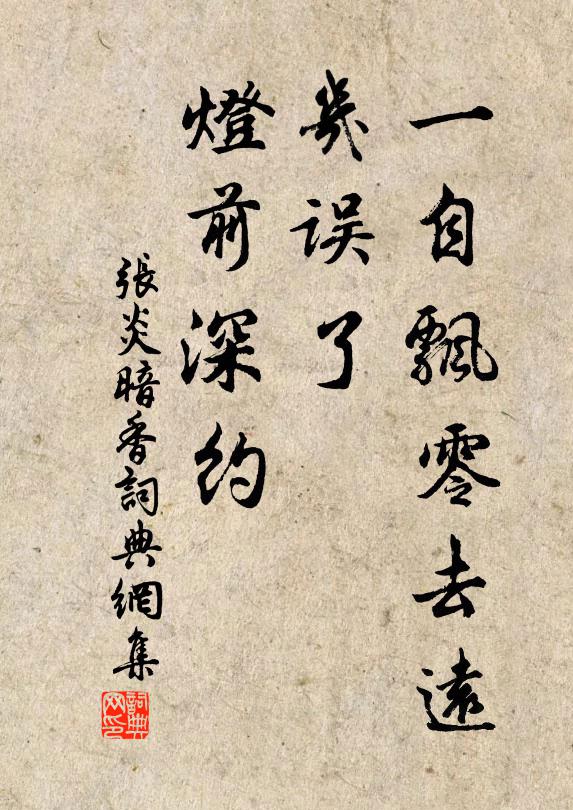 一自飄零去遠
幾誤了
燈前深約
張炎暗香詞典網集
詞典网印